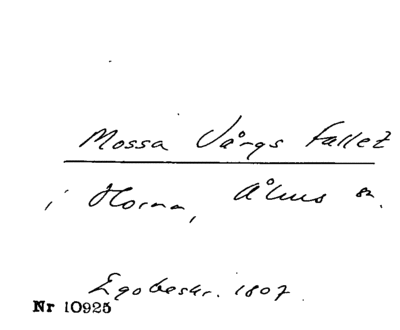 Mossa Vångs fallet
i Horna, Åhus sn.
Egobeskr. 1807.
Nr 10925